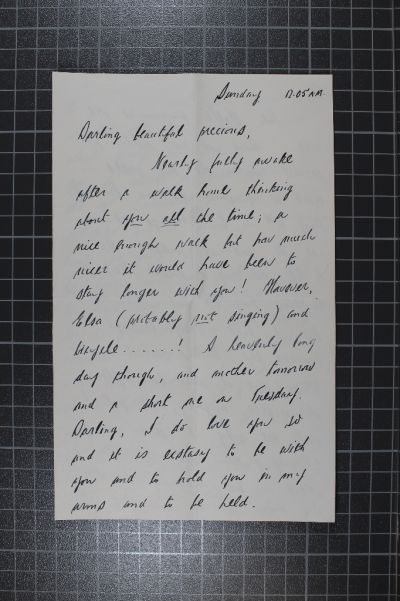 Sunday 12.05 A.M.
Darling beautiful precious,
Nearly fully awake
after a walk home thinking
about you all the time; a
nice enough walk but how much
nicer it would have been to
stay longer with you! However,
Elsa (probably not singing) and
bicycle.......! A heavenly long
day though, and another tomorrow
and a short one on Tuesday.
Darling, I do love you so
and it is ecstasy to be with
you and to hold you in my
arms and to be held.